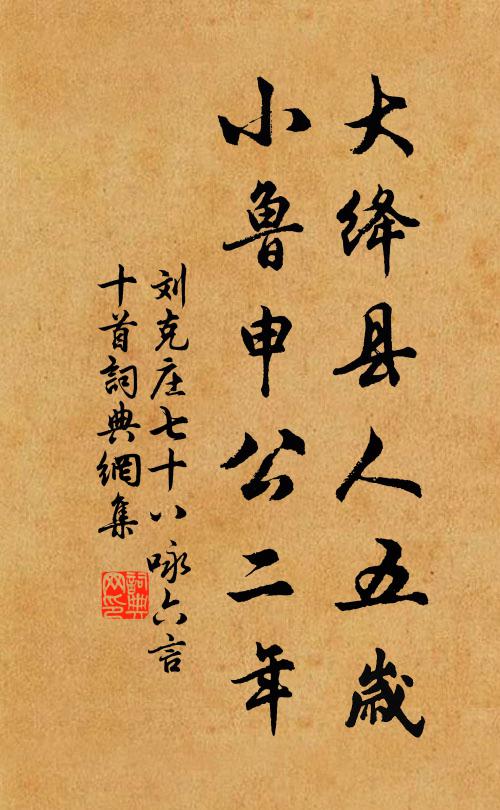 大绛县人五歲
小魯申公二年
刘克庄七十八咏六言
十首詞典網集
詞典網印